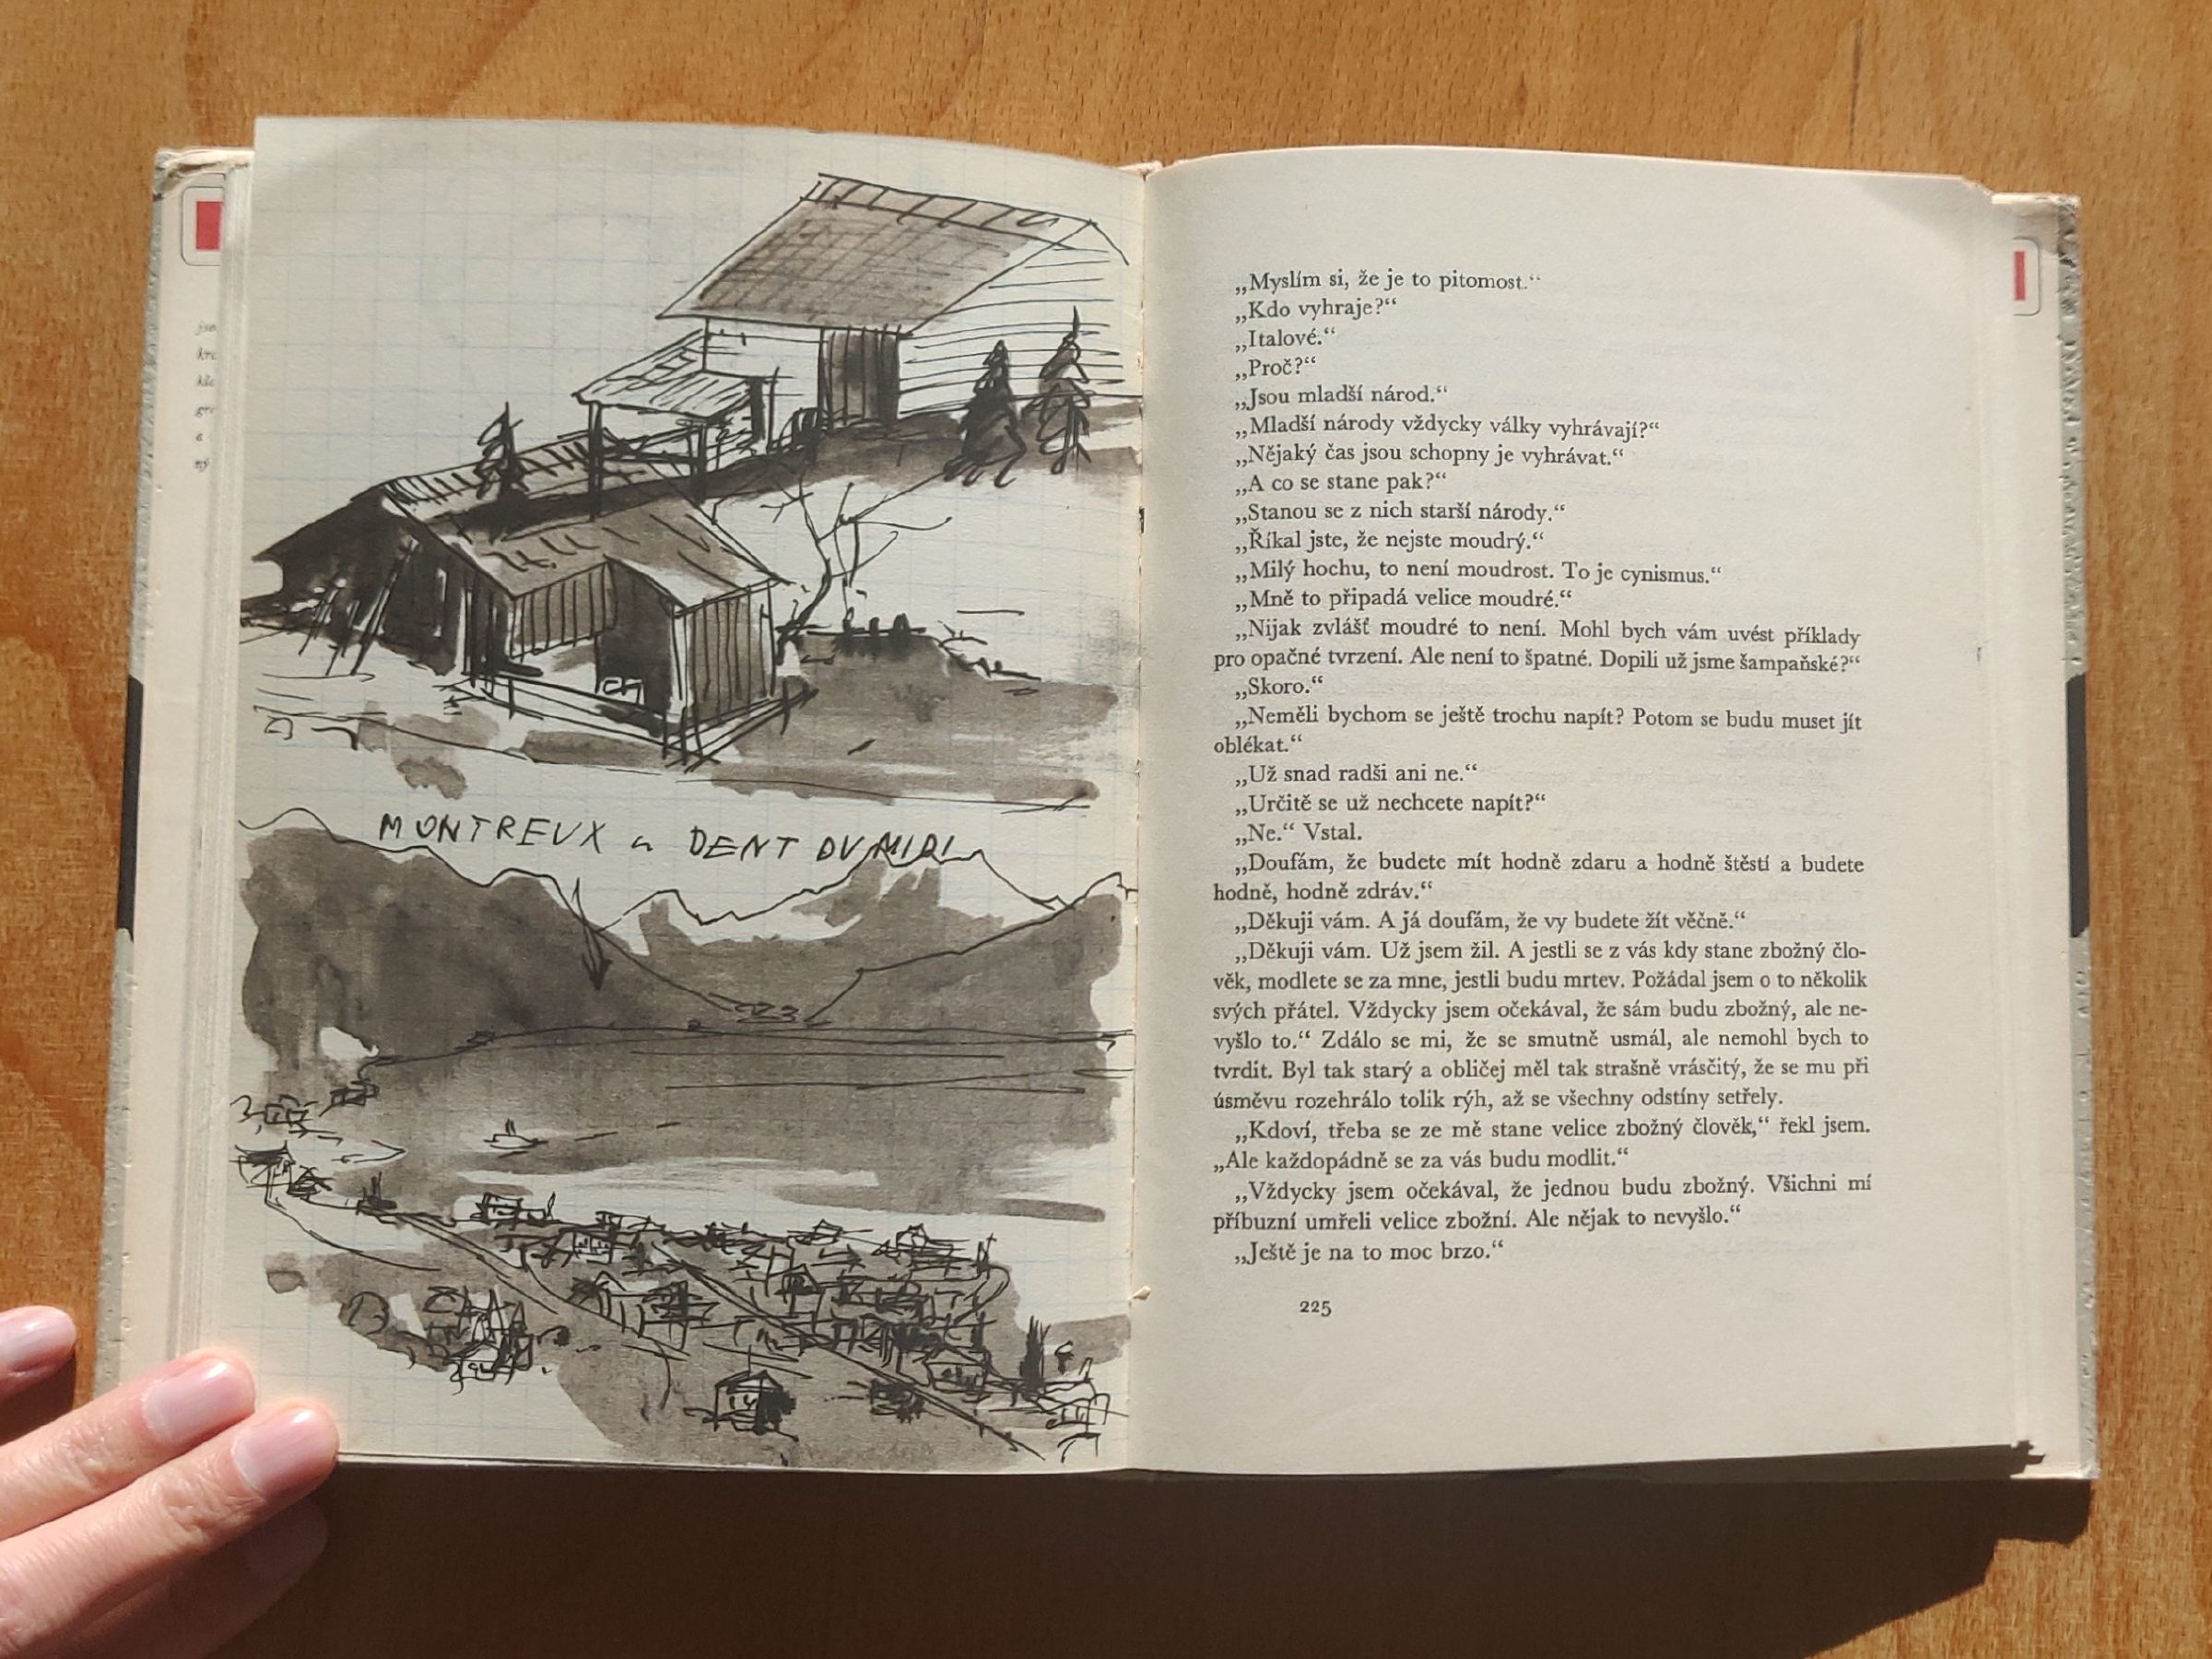 MONTREUX a DENT DU MIDI
„Myslím si, že je to pitomost.“
„Kdo vyhraje?“
„Italové.“
„Proč?“
„Jsou mladší národ.“
„Mladší národy vždycky války vyhrávají?“
„Nějaký čas jsou schopny je vyhrávat.“
„A co se stane pak?“
„Stanou se z nich starší národy.“
„Říkal jste, že nejste moudrý.“
„Milý hochu, to není moudrost. To je cynismus.“
„Mně to připadá velice moudré.“
„Nijak zvlášť moudré to není. Mohl bych vám uvést příklady
pro opačné tvrzení. Ale není to špatné. Dopili už jsme šampaňské?“
„Skoro.“
„Neměli bychom se ještě trochu napít? Potom se budu muset jít
oblékat.“
„Už snad radši ani ne.“
„Určitě se už nechcete napít?“
„Ne.“ Vstal.
„Doufám, že budete mít hodně zdaru a hodně štěstí a budete
hodně, hodně zdráv.“
„Děkuji vám. A já doufám, že vy budete žít věčně.“
„Děkuji vám. Už jsem žil. A jestli se z vás kdy stane zbožný člo-
věk, modlete se za mne, jestli budu mrtev. Požádal jsem o to několik
svých přátel. Vždycky jsem očekával, že sám budu zbožný, ale ne-
vyšlo to.“ Zdálo se mi, že se smutně usmál, ale nemohl bych to
tvrdit. Byl tak starý a obličej měl tak strašně vrásčitý, že se mu při
úsměvu rozehrálo tolik rýh, až se všechny odstíny setřely.
„Kdoví, třeba se ze mě stane velice zbožný člověk,“ řekl jsem.
„Ale každopádně se za vás budu modlit.“
„Vždycky jsem očekával, že jednou budu zbožný. Všichni mí
příbuzní umřeli velice zbožní. Ale nějak to nevyšlo.“
„Ještě je na to moc brzo.“
225